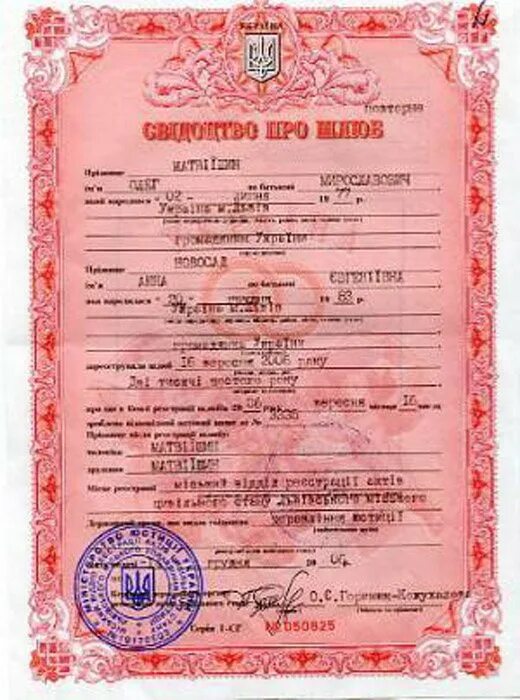 УКРАЇНА
повторне
СВІДОЦТВО ПРО ШЛЮБ
Прізвище МАТВІЇШИН
ім'я ОЛЕГ по батькові МИРОСЛАВОВИЧ
який народився 02 липня 19 77 р.
Україна м.Львів
громадянин України
Прізвище НОВОСАД
ім'я АННА по батькові ЄВГЕНІЇВНА
яка народилася 20 19 82 р.
Україна м.Львів
громадянка України
зареєстрували шлюб 16 вересня 2006 року
Дві тисячі шостого року
про що в Книзі реєстрації шлюбів 20 06 вересня місяця 16
зроблено відповідний актовий запис за № 3335
Прізвище після реєстрації шлюбу:
чоловіка МАТВІЇШИН
дружини МАТВІЇШИН
Місце реєстрації міський відділ реєстрації актів
цивільного стану Львівського міського
управління юстиції
грудня 06 р.
О.Є.
Серія І-СГ № 050825